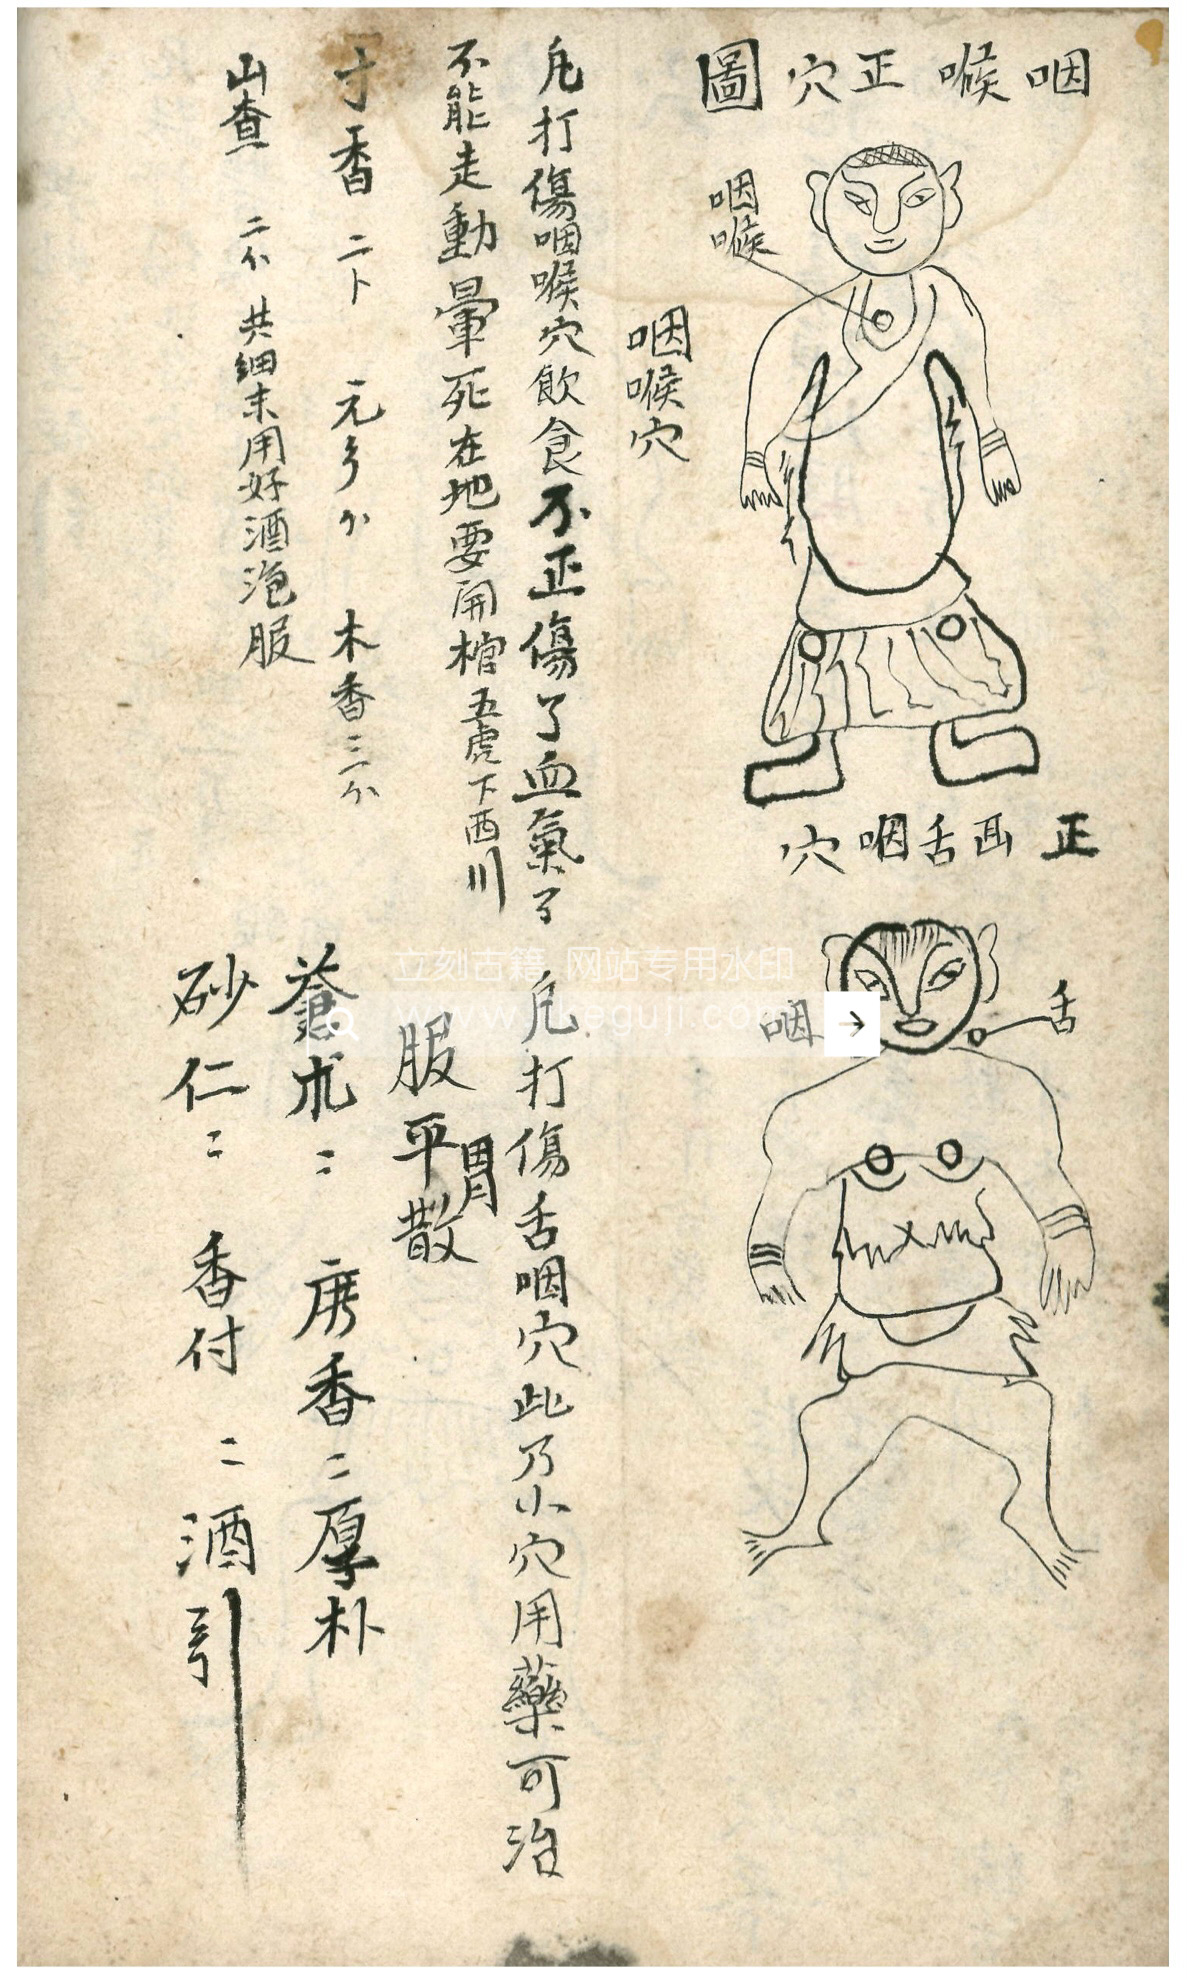 咽喉正穴圖
咽喉
咽喉穴
凡打傷咽喉穴飲食不正傷了血氣了
不能走動暈死在地要開棺五虎下西川
寸香二卜 元 木香三分
山查 二分 共細末用好酒泡服
正面舌咽穴
舌
咽
凡打傷舌咽穴此乃小穴用藥可治
服平胃散
蒼朮二 唐香二厚朴
砂仁二 香付二酒引
立刻古籍 网站专用水印